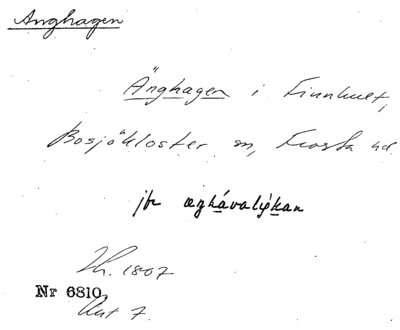 Änghagen
Änghagen i Finnhult,
Bosjökloster sn, Frosta hd.
jfr æghávalýkan
Sk. 1807
Nr 6810
Akt 7.